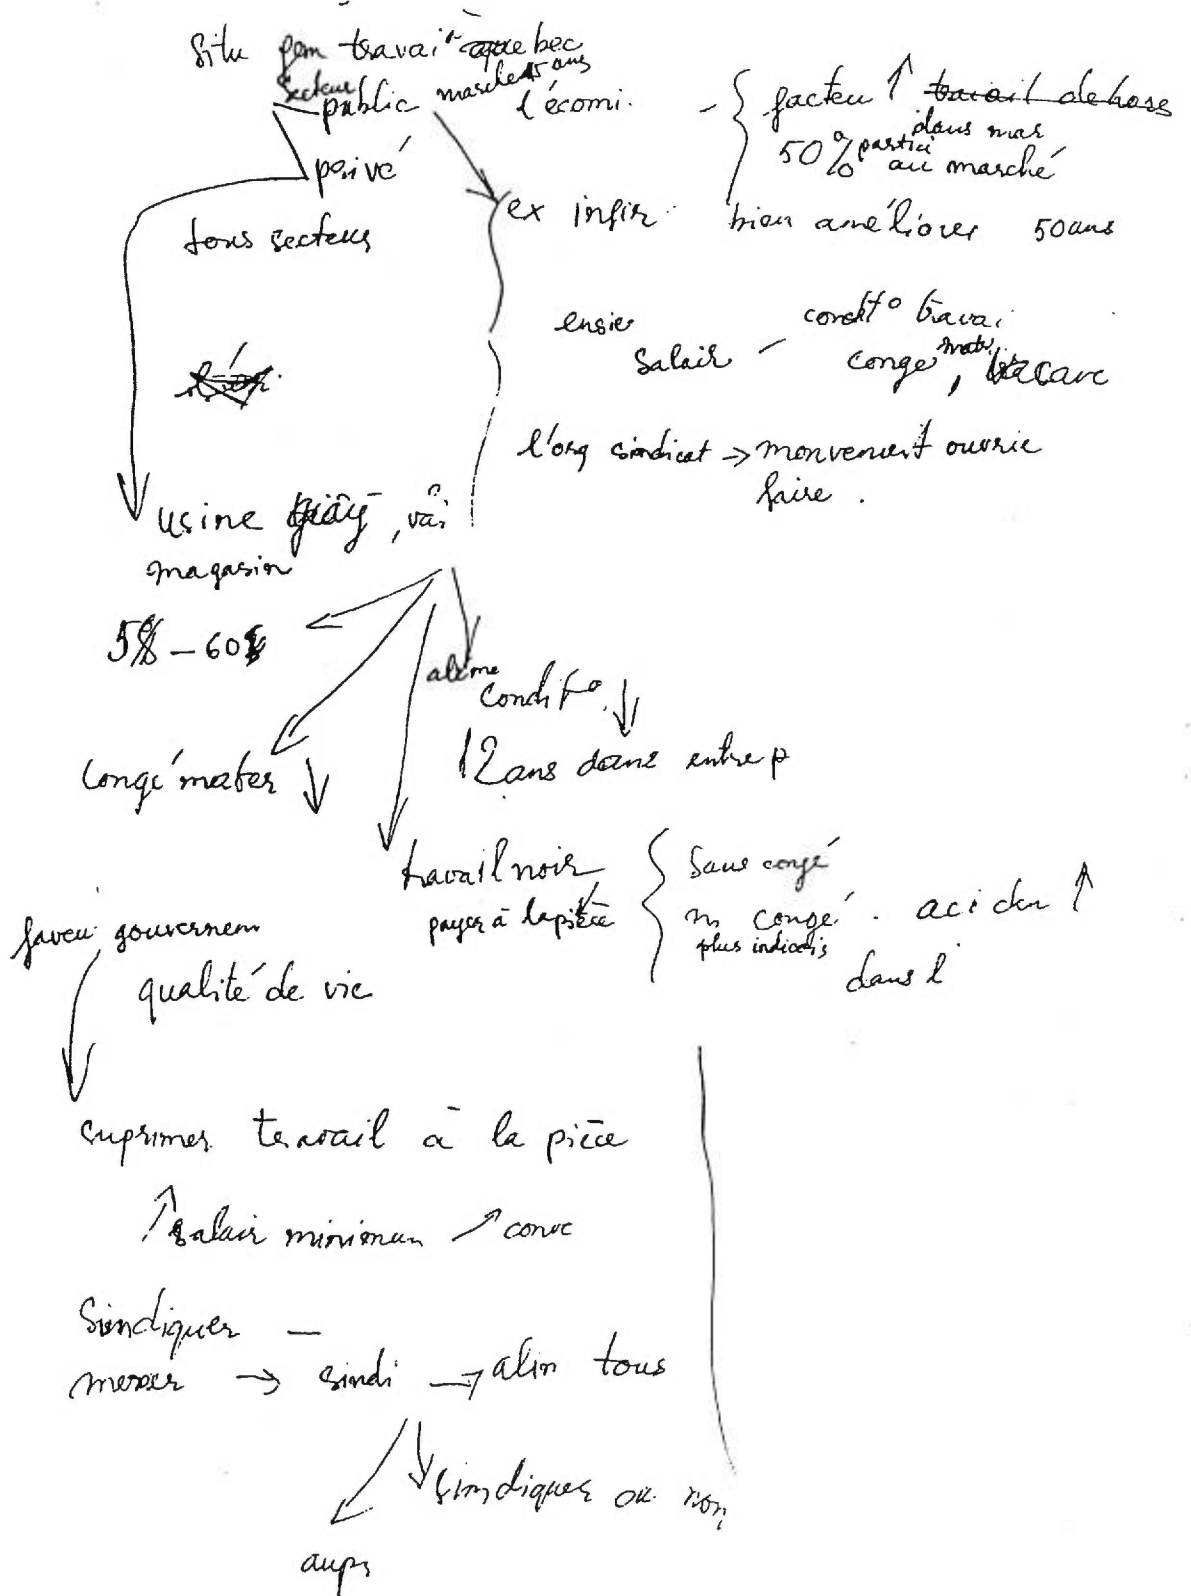 situ fem travai quebec
secteur public marche 15 ans l'écomi.
facteu ↑ travail dehors
dans mar
50% partici au marché
privé
ex infir bien améliorer 50 ans
tous secteurs
condit° travai
salair – congé mat,
l'org sindicat → mouvement ouvrie
faire.
usine giấy, vải
magasin
5$ – 60$
condit° ↓
12 ans dans entrep
congé mater ↓
travail noir
payer à la pièce
sans congé
congé. aciden ↑
plus
dans l
faveu gouvernem
qualité de vie
suprimer travail à la pièce
↑ salair minimun ↗ conve
Sindiquer –
→ sindi → alin tous
sindiquer ou non
aups